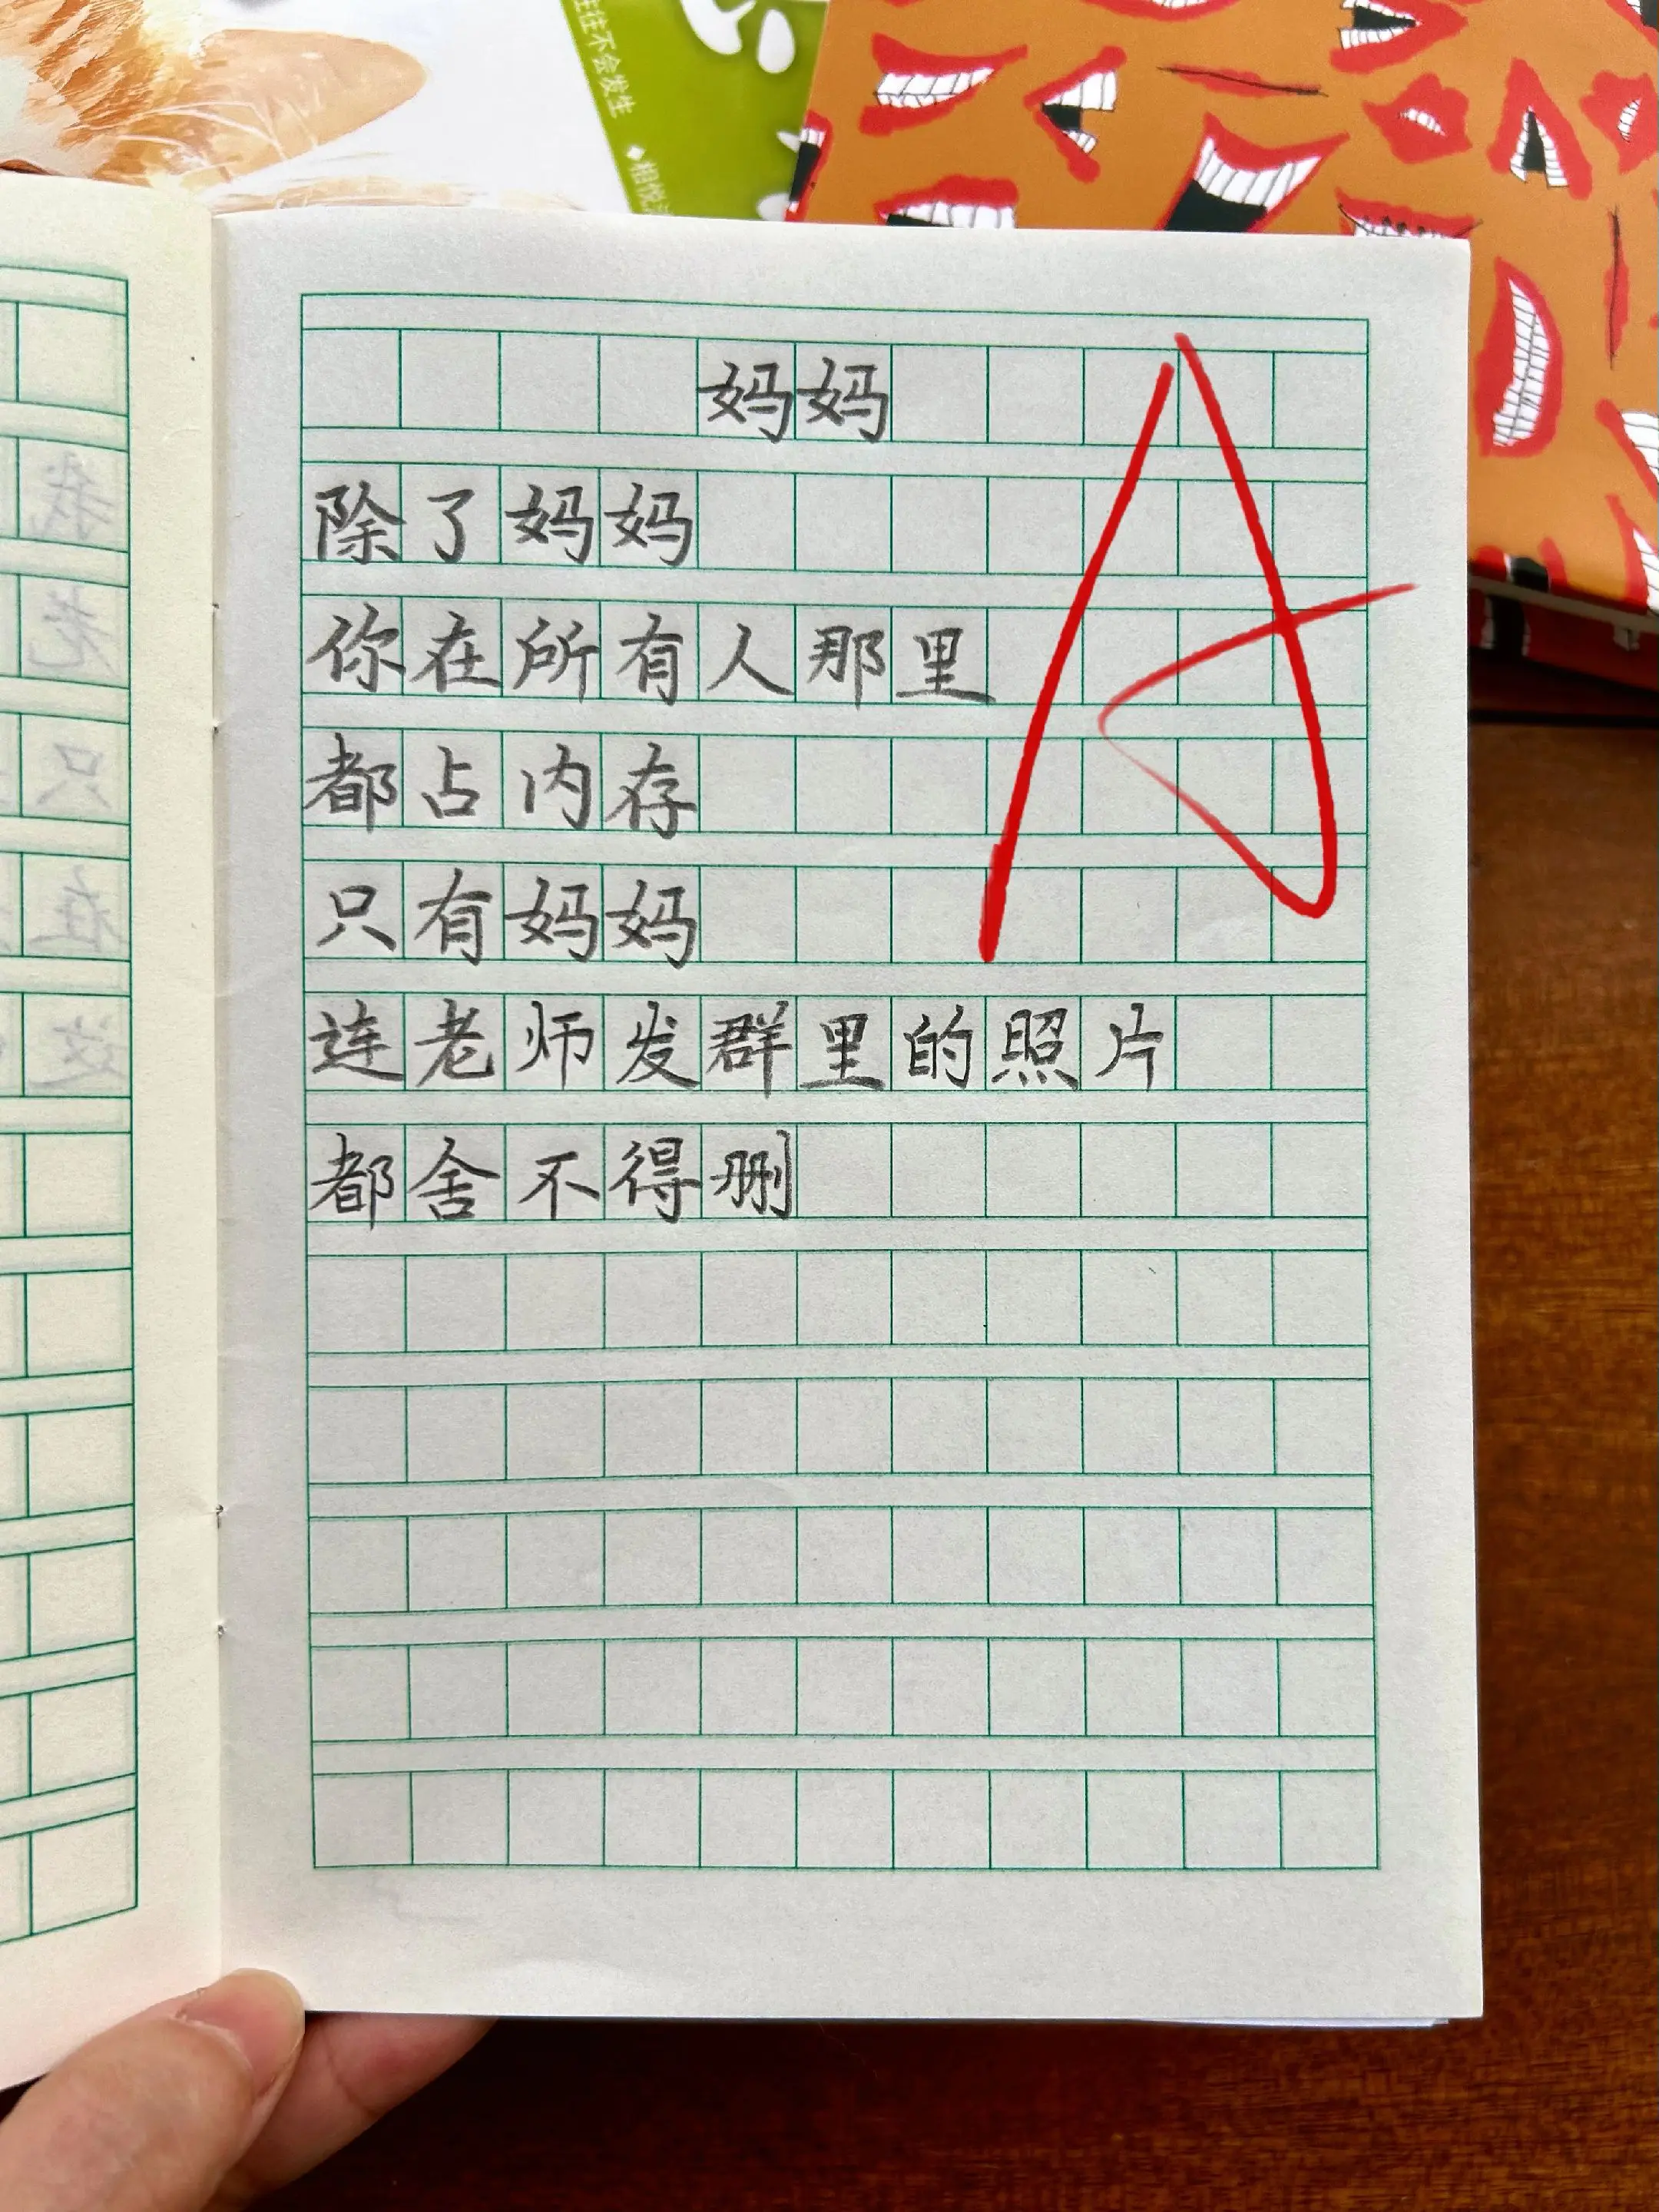 往往不会发生
◆相悦
妈妈
A
除了妈妈
你在所有人那里
都占内存
只有妈妈
连老师发群里的照片
都舍不得删
我
老
只
在
这